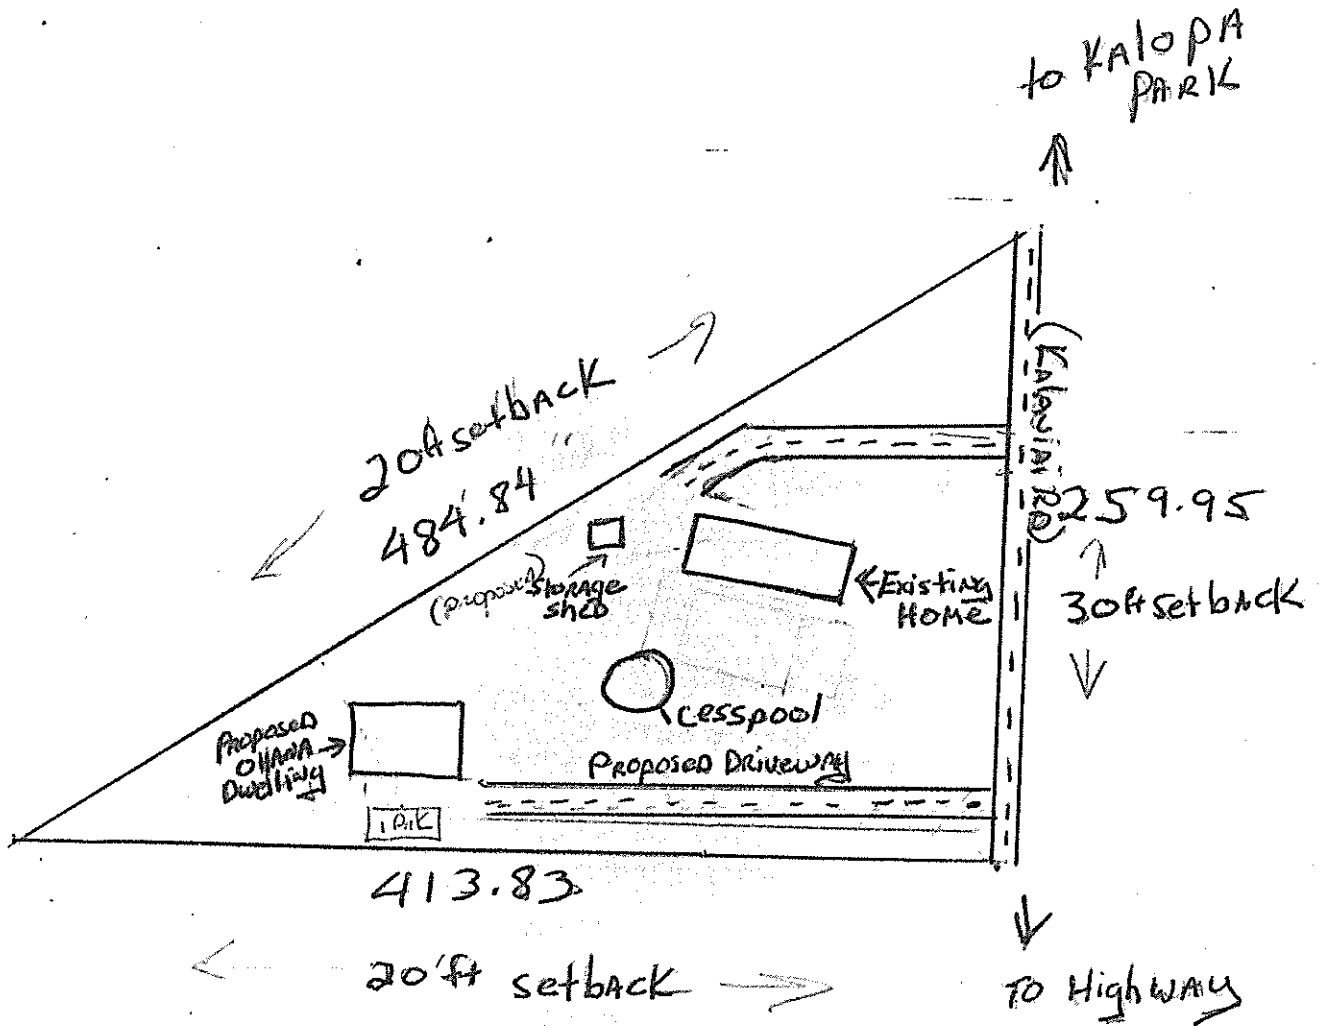 to KAlOPA
PARK
20ft setback
484.84
(KAlANiAi RD)
259.95
30ft setback
(proposed)
Storage
shed
←Existing
Home
cesspool
Proposed
OHANA
Dwelling
Proposed Driveway
413.83
20'ft setback
To Highway